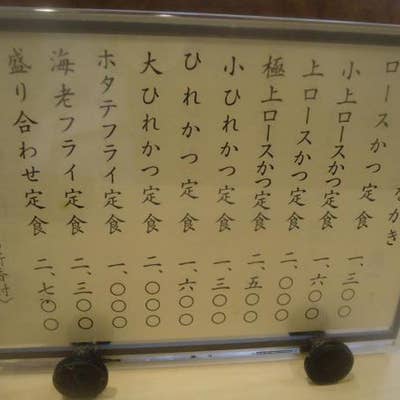 ロースかつ定食 一、三〇〇
小上ロースかつ定食 一、六〇〇
上ロースかつ定食 二、〇〇〇
極上ロースかつ定食 二、五〇〇
小ひれかつ定食 一、三〇〇
ひれかつ定食 一、六〇〇
大ひれかつ定食 二、〇〇〇
ホタテフライ定食 一、〇〇〇
海老フライ定食 二、三〇〇
盛り合わせ定食 二、七〇〇